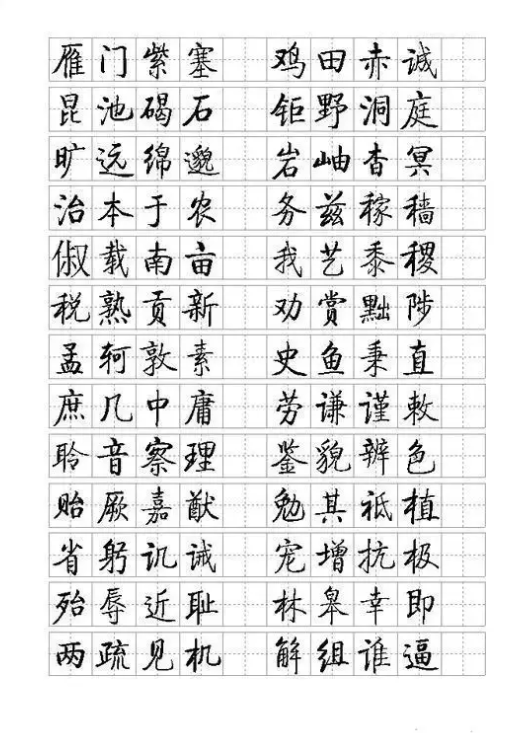 雁门紫塞 鸡田赤诚
昆池碣石 钜野洞庭
旷远绵邈 岩岫杳冥
治本于农 务兹稼穑
俶载南亩 我艺黍稷
税熟贡新 劝赏黜陟
孟轲敦素 史鱼秉直
庶几中庸 劳谦谨敕
聆音察理 鉴貌辨色
贻厥嘉猷 勉其祗植
省躬讥诫 宠增抗极
殆辱近耻 林皋幸即
两疏见机 解组谁逼